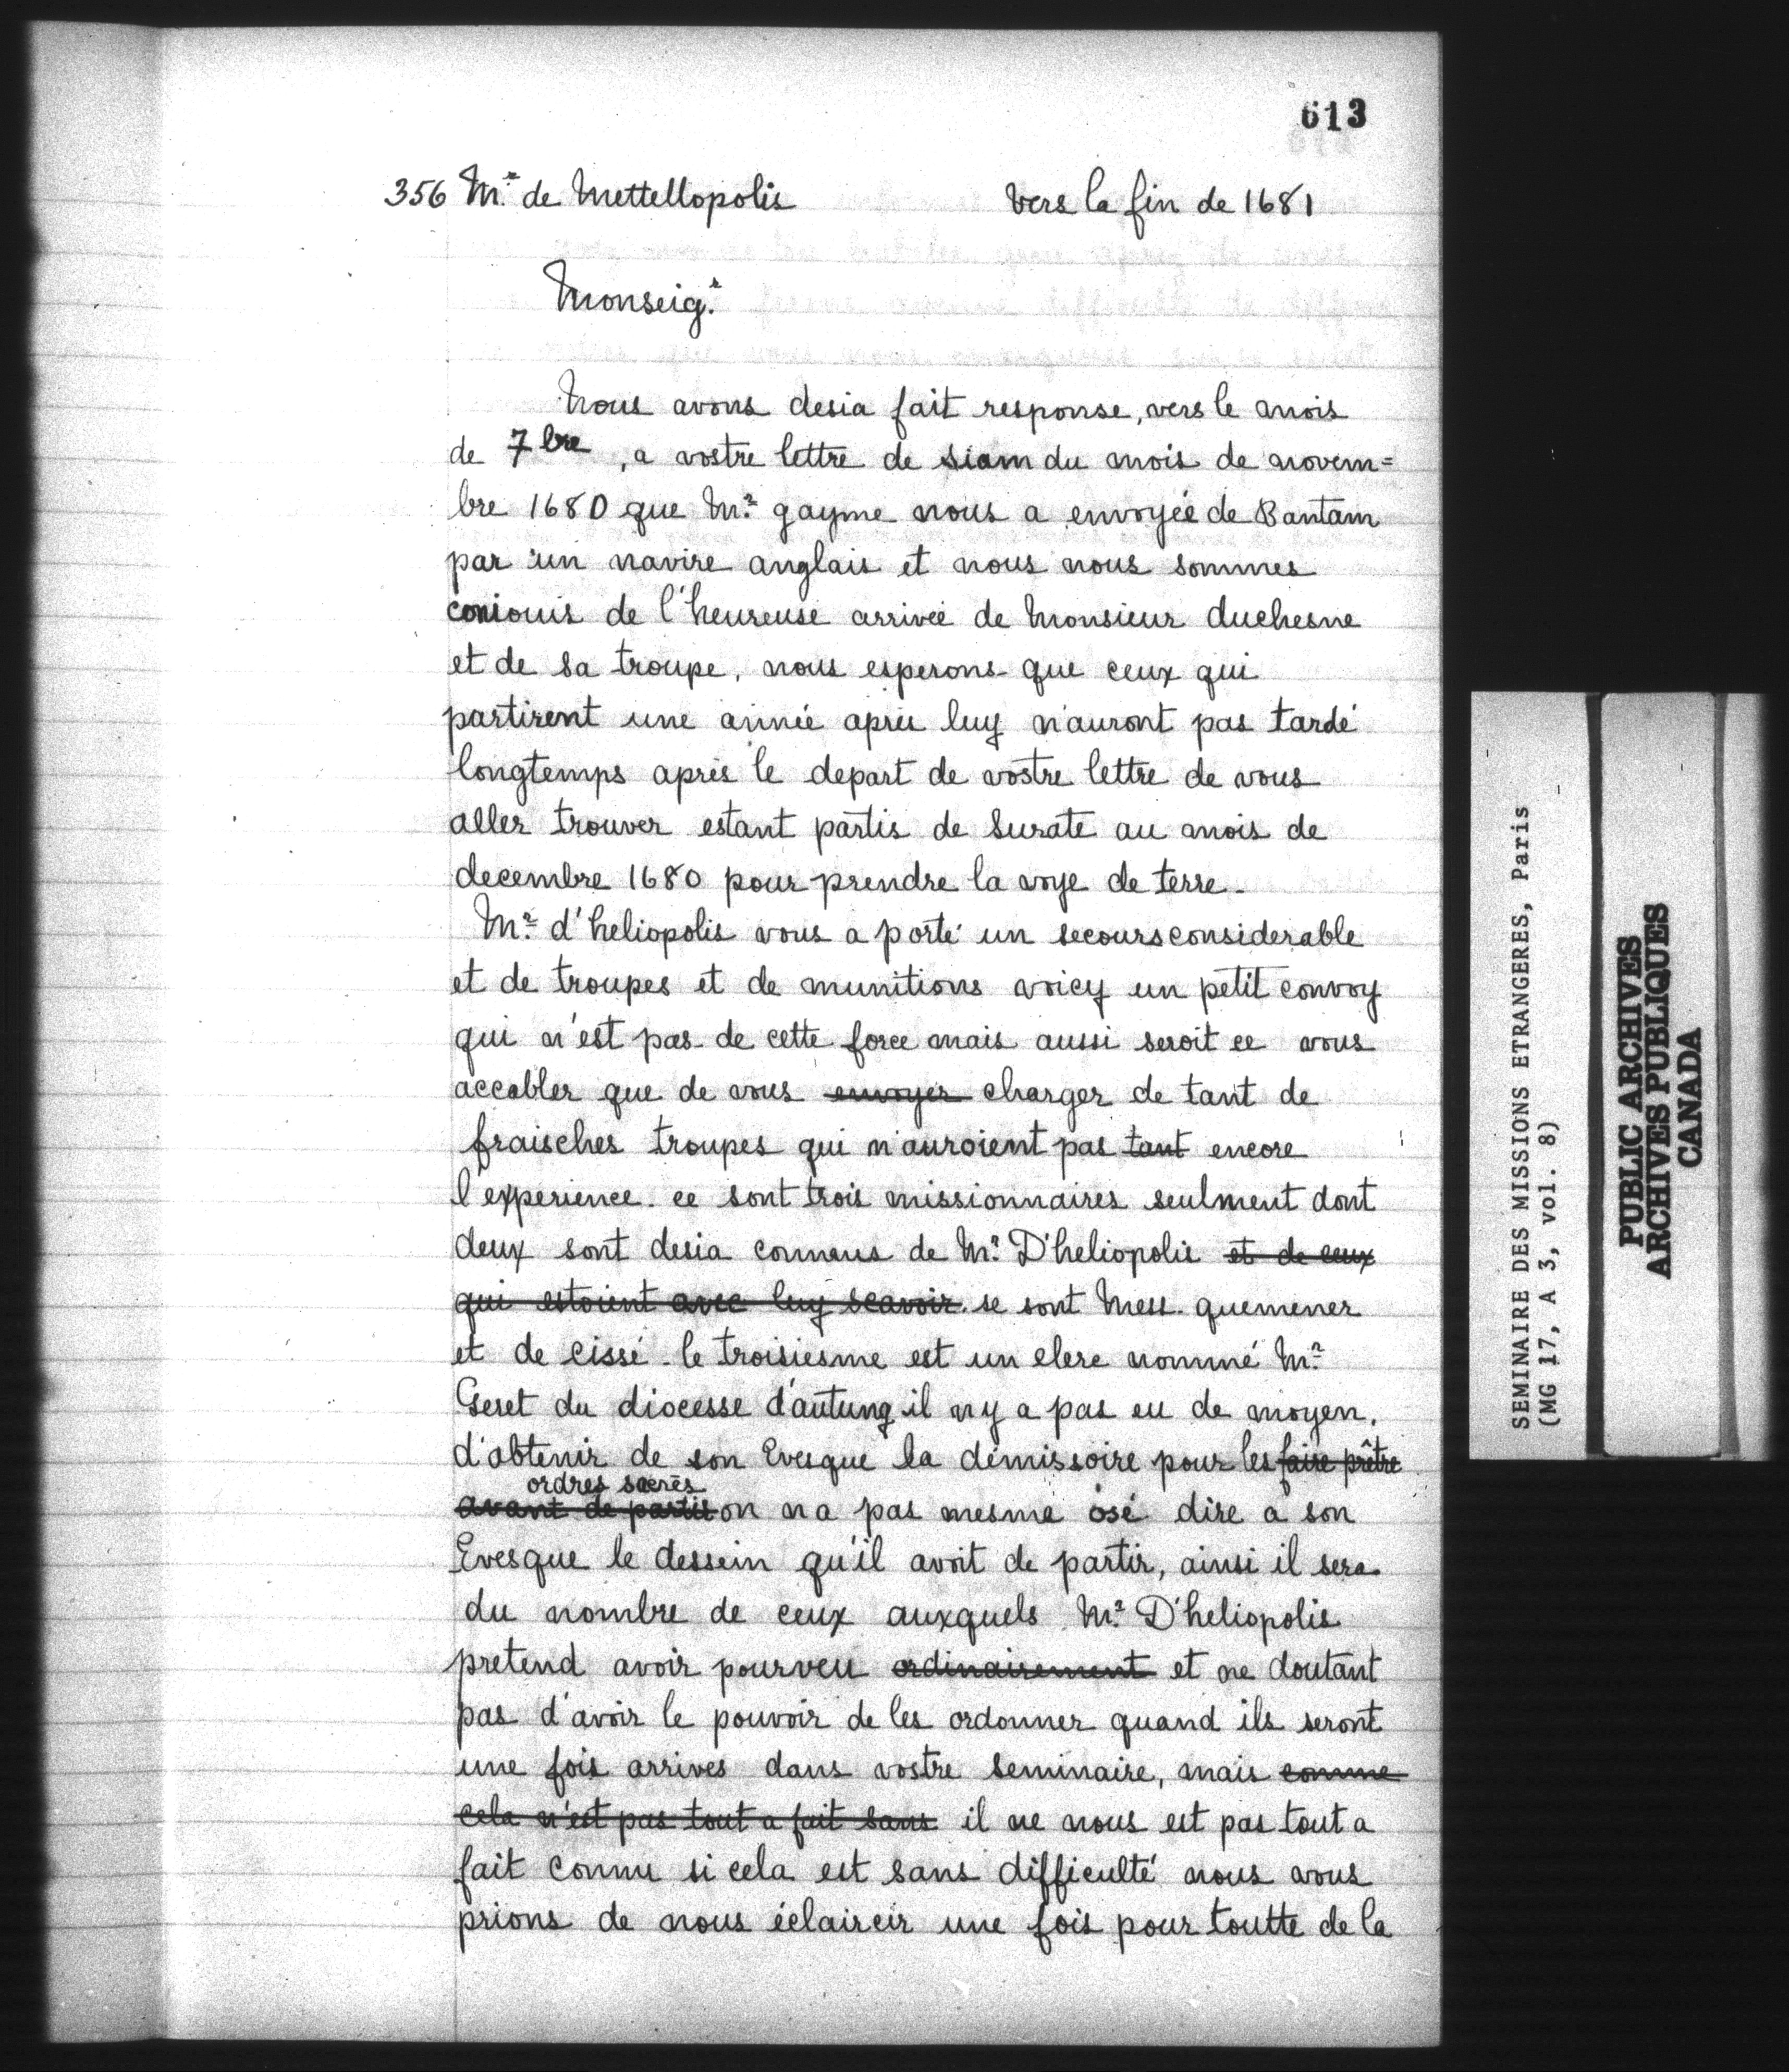 613
356 Mr. de Mettellopolis vers la fin de 1681
Monseigr.
Nous avons desia fait response, vers le mois
de 7bre, a vostre lettre de siam du mois de novem=
bre 1680 que Mr. gayme nous a envoyée de Bantam
par un navire anglais et nous nous sommes
coniouis de l'heureuse arrivée de Monsieur duchesne
et de sa troupe, nous esperons que ceux qui
partirent une année aprés luy n'auront pas tardé
longtemps aprés le depart de vostre lettre de vous
aller trouver estant partis de Surate au mois de
decembre 1680 pour prendre la voye de terre.
Mr. d'heliopolis vous a porté un secours considerable
et de troupes et de munitions voicy un petit convoy
qui n'est pas de cette force mais aussi seroit ce vous
accabler que de vous envoyer charger de tant de
fraisches troupes qui n'auroient pas tant encore
l'experience. ce sont trois missionnaires seulment dont
deux sont desia connus de Mr. D'heliopolis et de ceux
qui estoient avec luy scavoir. se sont Mess. quemener
et de cissé. le troisiesme est un clerc nommé Mr.
Geret du diocesse d'autung il n y a pas eu de moyen.
d'obtenir de son Evesque la démissoire pour les faire prêtre
ordres sacrés
avant de partir on n a pas mesme osé dire a son
Evesque le dessein qu'il avoit de partir, ainsi il sera
du nombre de ceux auxquels Mr. D'heliopolis
pretend avoir pourveu ordinairement et ne doutant
pas d'avoir le pouvoir de les ordonner quand ils seront
une fois arrives dans vostre seminaire, mais comme
cela n'est pas tout a fait sans il ne nous est pas tout a
fait connu si cela est sans difficulté nous vous
prions de nous éclaircir une fois pour toutte de la
SEMINAIRE DES MISSIONS ETRANGERES, Paris
(MG 17, A 3, vol. 8)
PUBLIC ARCHIVES
ARCHIVES PUBLIQUES
CANADA